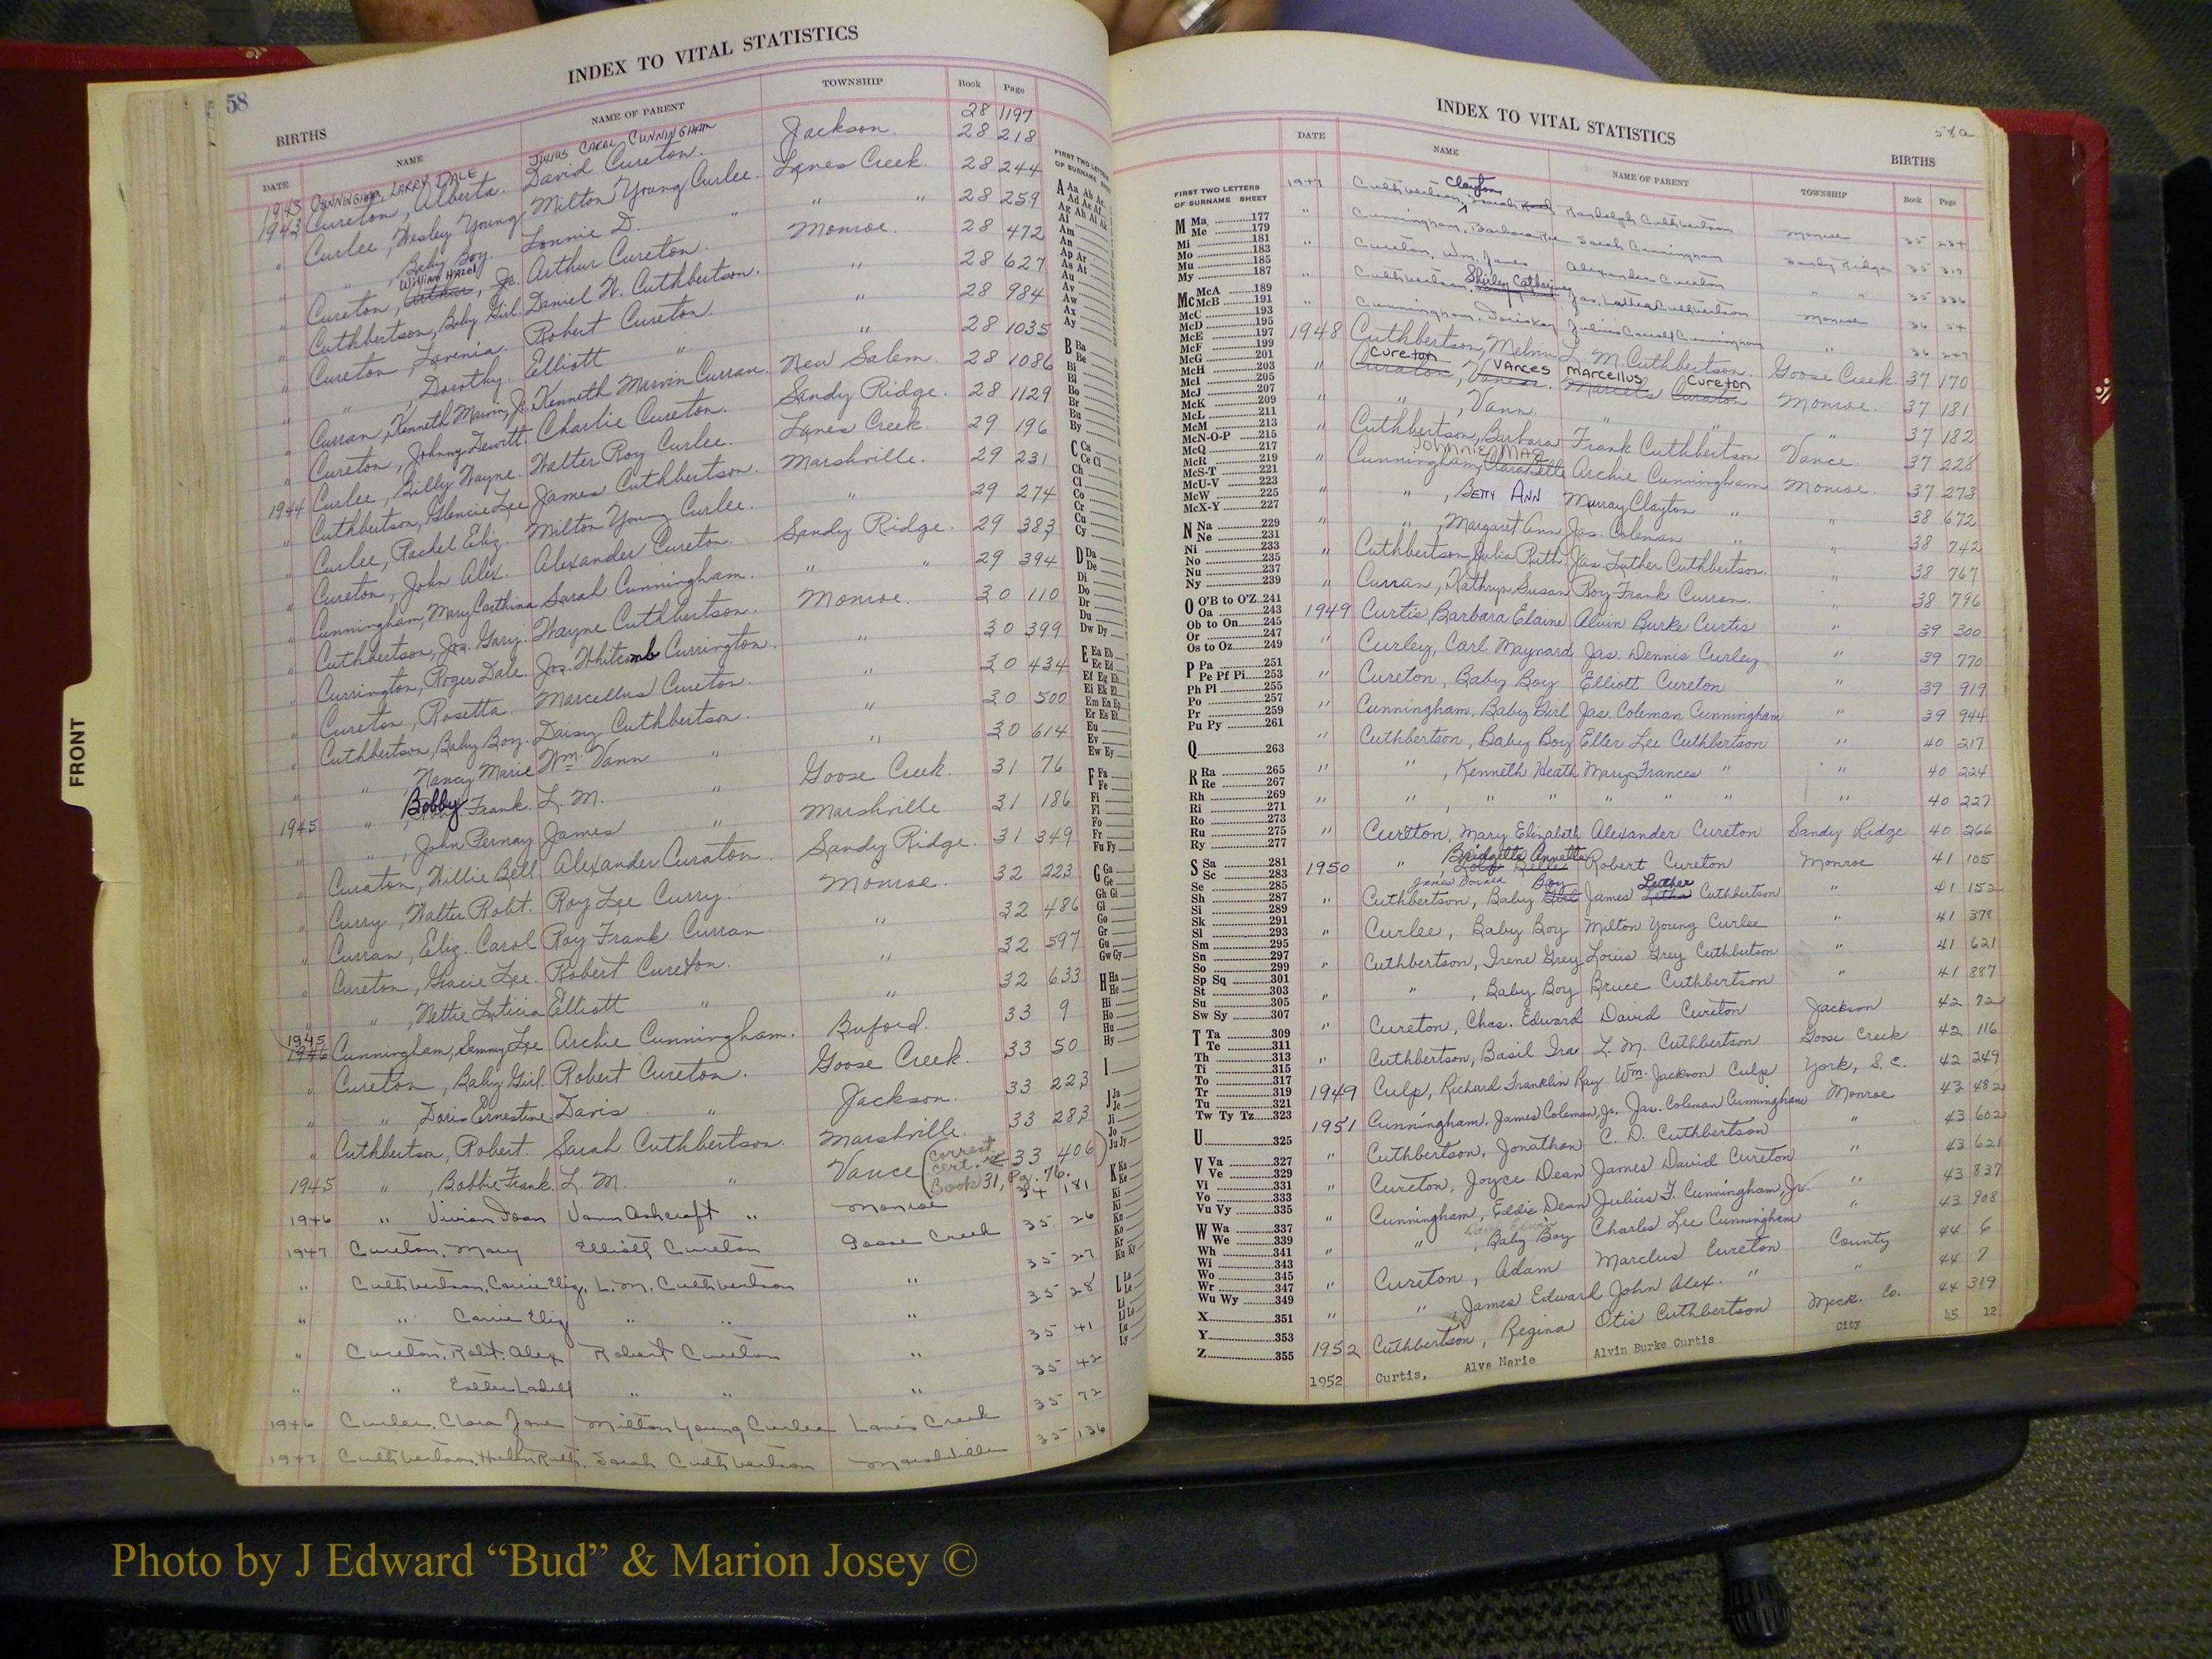 58
INDEX TO VITAL STATISTICS
BIRTHS
DATE NAME NAME OF PARENT TOWNSHIP Book Page
1943 CUNNINGHAM, LARRY DALE JULIUS CAROL CUNNINGHAM 28 1197
1943 Cureton, Alberta. David Cureton. Jackson. 28 218
" Curlee, Wesley Young Milton Young Curlee. Lanes Creek. 28 244
" " , Baby Boy. Lonnie D. " " " 28 259
" Cureton, Arthur, Jr. WILLINO HAZEL Arthur Cureton. Monroe. 28 472
" Cuthbertson, Baby Girl. Daniel W. Cuthbertson. " 28 627
" Cureton, Lavenia. Robert Cureton. " 28 984
" " , Dorothy. Elliott " " 28 1035
" Curran, Kenneth Marvin, Jr. Kenneth Marvin Curran. New Salem. 28 1086
" Cureton, Johnny Dewitt. Charlie Cureton. Sandy Ridge. 28 1129
" Curlee, Billy Wayne. Walter Roy Curlee. Lanes Creek. 29 196
1944 Cuthbertson, Glencie Lee James Cuthbertson. Marshville. 29 231
" Curlee, Rachel Eliz. Milton Young Curlee. " 29 274
" Cureton, John Alex. Alexander Cureton. Sandy Ridge. 29 383
" Cunningham, Mary Carthina Sarah Cunningham. " " 29 394
" Cuthbertson, Jos. Gary. Wayne Cuthbertson. Monroe. 30 110
" Currington, Roger Dale. Jos. Whitcomb Currington. " 30 399
" Cureton, Rosetta. Marcellus Cureton. " 30 434
" Cuthbertson, Baby Boy. Daisy Cuthbertson. " 30 500
" " , Nancy Marie Wm. Vann " " 30 614
1945 " , Bobby Frank. L. M. " Goose Creek. 31 76
" " , John Pernay James " Marshville 31 186
" Curaton, Willie Bell Alexander Curaton. Sandy Ridge. 31 349
" Curry, Walter Robt. Roy Lee Curry. Monroe. 32 223
" Curran, Eliz. Carol Roy Frank Curran " 32 486
" Cureton, Gracie Lee. Robert Cureton. " 32 597
" " , Nettie Leticia Elliott " " 32 633
1945 1946 Cunningham, Sammy Lee Archie Cunningham. Buford. 33 9
" Cureton, Baby Girl. Robert Cureton. Goose Creek. 33 50
" " Doris Ernestine. Davis " Jackson. 33 223
" Cuthbertson, Robert. Sarah Cuthbertson. Marshville. 33 283
1945 " , Bobbie Frank. L. M. " Vance (correct cert. is Book 31, Pg. 76.) 33 406
1946 " Vivian Joan Vann Ashcraft " Monroe 34 181
1947 Cureton, Mary Elliott Cureton Goose Creek 35 26
" Cuthbertson, Carrie Eliz. L. M. Cuthbertson " 35 27
" " Carrie Eliz " " " 35 28
" Cureton, Robt. Alex Robert Cureton " 35 41
" " Ladell " " " 35 42
1946 Curlee, Clara Jane Milton Young Curlee Lanes Creek 35 72
1947 Cuthbertson, Helen Ruth. Sarah Cuthbertson Marshville 35 136
FRONT
FIRST TWO LETTERS
OF SURNAME SHEET
INDEX TO VITAL STATISTICS
58a
BIRTHS
DATE NAME NAME OF PARENT TOWNSHIP Book Page
1947 Cuthbertson, Clayton Randolph Cuthbertson Monroe 35 234
" Cunningham, Barbara Sarah Cunningham Sandy Ridge 35 317
" Cureton, Wm. James Alexander Cureton " " 35 336
" Cuthbertson, Shirley Catherine Jas. Luther Cuthbertson Monroe 36 34
" Cunningham, Doris Kay Julius Carroll Cunningham " 36 247
1948 Cuthbertson, Melvin L. M. Cuthbertson. Goose Creek 37 170
" Curaton Cureton, VANCES MARCELLUS Marcels Curaton Cureton Monroe 37 181
" " , Vann. " " " 37 182
" Cuthbertson, Barbara Frank Cuthbertson Vance 37 228
" Cunningham, Clarabelle JOHNNIE MAE Archie Cunningham Monroe. 37 273
" " , BETTY ANN Murray Clayton " " 38 672
" " , Margaret Ann Jas. Coleman " " 38 742
" Cuthbertson, Julia Ruth. Jas. Luther Cuthbertson. " 38 767
" Curran, Kathryn Susan Roy Frank Curran. " 38 796
1949 Curtis, Barbara Elaine Alvin Burke Curtis " 39 300
" Curley, Carl Maynard Jas. Dennis Curley " 39 770
" Cureton, Baby Boy Elliott Cureton " 39 919
" Cunningham, Baby Girl Jas. Coleman Cunningham " 39 944
" Cuthbertson, Baby Boy Eller Lee Cuthbertson " 40 217
" " , Kenneth Heath Mary Frances " " 40 224
" " , " " " " " " 40 227
" Cureton, Mary Elizabeth Alexander Cureton Sandy Ridge 40 266
1950 " , Bridgette Annette Robert Cureton Monroe 41 105
" Cuthbertson, Baby Girl Boy James Donald James Letha Luther Cuthbertson " 41 152
" Curlee, Baby Boy Milton Young Curlee " 41 378
" Cuthbertson, Irene Grey Louis Grey Cuthbertson " 41 621
" " , Baby Boy Bruce Cuthbertson " 41 887
" Cureton, Chas. Edward David Cureton Jackson 42 72
" Cuthbertson, Basil Ira L. M. Cuthbertson Goose Creek 42 116
1949 Culp, Richard Franklin Ray Wm. Jackson Culp York, S.C. 42 249
1951 Cunningham, James Coleman, Jr. Jas. Coleman Cunningham Monroe 43 482
" Cuthbertson, Jonathan C. D. Cuthbertson " 43 602
" Cureton, Joyce Dean James David Cureton " 43 621
" Cunningham, Eddie Dean Julius F. Cunningham, Jr. " 43 837
" " , Baby Boy Charles Lee Cunningham " 43 908
" Cureton, Adam Marclus Cureton County 44 6
" " , James Edward John Alex. " " 44 7
1952 Cuthbertson, Regina Otis Cuthbertson Meck. Co. 44 319
1952 Curtis, Alve Marie Alvin Burke Curtis City 45 12
FIRST TWO LETTERS
OF SURNAME SHEET
M Ma 177
Me 179
Mi 181
Mo 183
Mu 185
My 187
Mc McA 189
McB 191
McC 193
McD 195
McE 197
McF 199
McG 201
McH 203
McI 205
McJ 207
McK 209
McL 211
McM 213
McN-O-P 215
McQ 217
McR 219
McS-T 221
McU-V 223
McW 225
McX-Y 227
N Na 229
Ne 231
Ni 233
No 235
Nu 237
Ny 239
O O'B to O'Z 241
Oa 243
Ob to On 245
Or 247
Os to Oz 249
P Pa 251
Pe Pf Pi 253
Ph Pl 255
Po 257
Pr 259
Pu Py 261
Q 263
R Ra 265
Re 267
Rh 269
Ri 271
Ro 273
Ru 275
Ry 277
S Sa 281
Sc 283
Se 285
Sh 287
Si 289
Sk 291
Sl 293
Sm 295
Sn 297
So 299
Sp Sq 301
St 303
Su 305
Sw Sy 307
T Ta 309
Te 311
Th 313
Ti 315
To 317
Tr 319
Tu 321
Tw Ty Tz 323
U 325
V Va 327
Ve 329
Vi 331
Vo 333
Vu Vy 335
W Wa 337
We 339
Wh 341
Wi 343
Wo 345
Wr 347
Wu Wy 349
X 351
Y 353
Z 355
Photo by J Edward “Bud” & Marion Josey ©